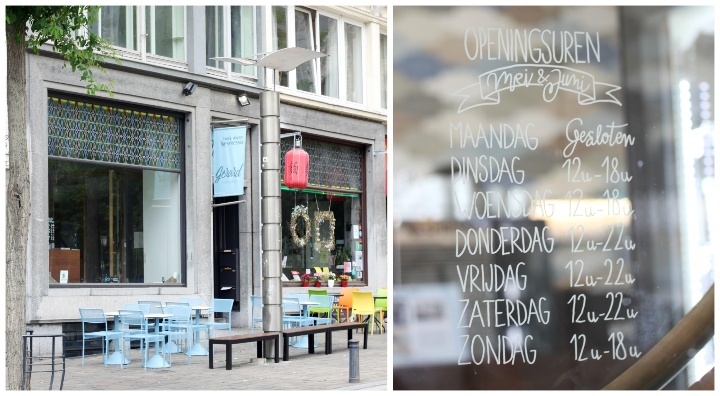 Gerard
OPENINGSUREN
Mei & Juni
MAANDAG Gesloten
DINSDAG 12u-18u
WOENSDAG 12u-18u
DONDERDAG 12u-22u
VRIJDAG 12u-22u
ZATERDAG 12u-22u
ZONDAG 12u-18u